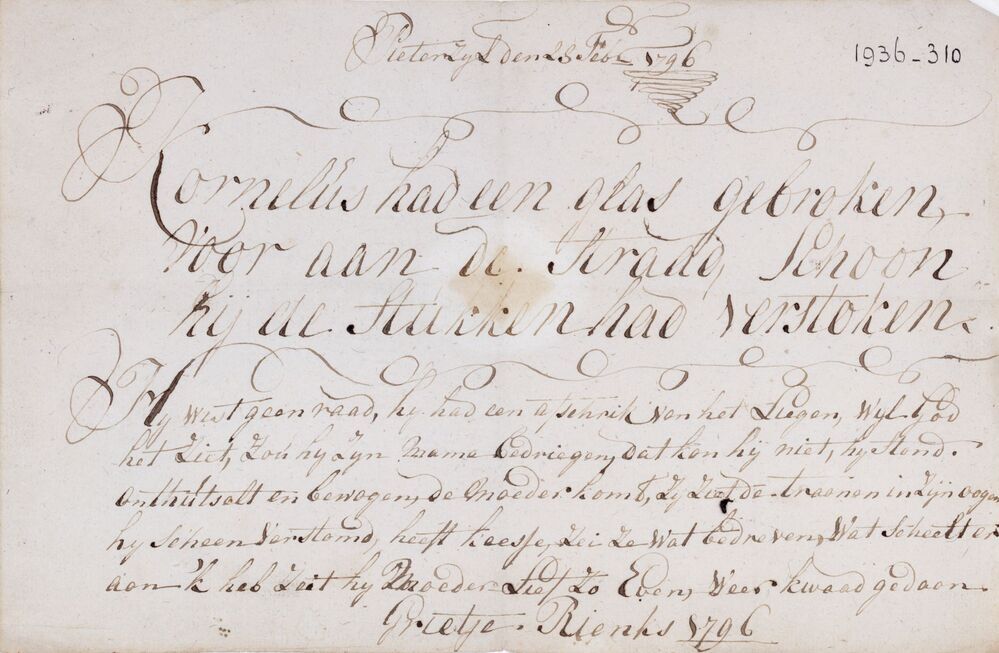 Pieterzyl den 23 Feb: 1796
1936-310
Kornelius had een glas gebroken,
Voor aan de. Straag, Schoon
hij de Stukken had Verstoken.
Hy wist geen raad, hy had een afschrik van het Liegen, Wyl God
het Ziet, Zou hy Zyn Mama Bedriegen, dat kon hij niet, hy stond.
onthutsalt en bewogen, de Moeder komt, Zy Ziet de traanen in Zijn oogen
hy scheen Verstomd, heeft keesje, Zei Ze Wat bedreven, Wat Scheelt, er
aan 'k heb Zeit hy Moeder Lief Zo Even, Weer kwaad gedaan.
Grietje. Rienks 1796